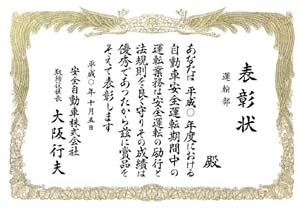 表彰状
運輸部
殿
あなたは平成○年度における
自動車安全運転期間中の
運転業務は安全運転の励行と
法規則を良く守りその成績は
優秀であったから茲に賞品を
そえて表彰します
平成○年十月五日
安全自動車株式会社
取締役社長 大阪行夫